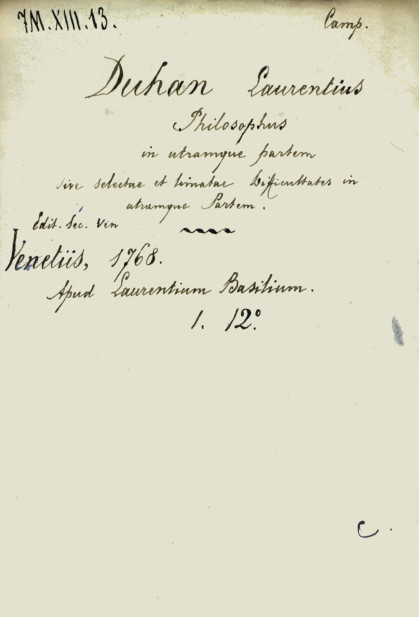 7M. XIII. 13.
Camp.
Duhan Laurentius
Philosophus
in utramque partem
sive selectae et limatae Difficultates in
utramque Partem.
Edit. Sec. Ven
Venetiis, 1768.
Apud Laurentium Basilium.
1. 12°.
C.